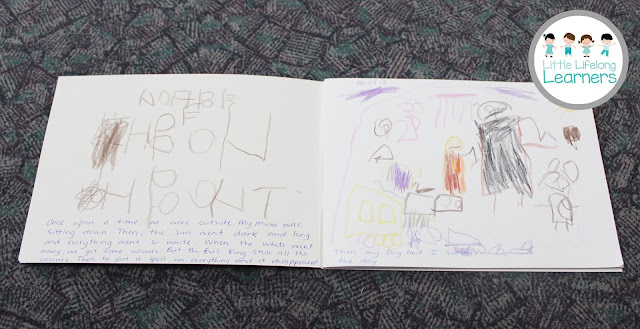 NOFBE
HBFON
HPONT
Once upon a time we were outside. My mum was
sitting down. Then, the sun went dark and long
and everything went so white. When the whits went
away, we got some colours. But the Evil King stole all the
colours. Then he put a spell on everything and it disappeared
Then my Dog and I
the day
Little Lifelong
Learners